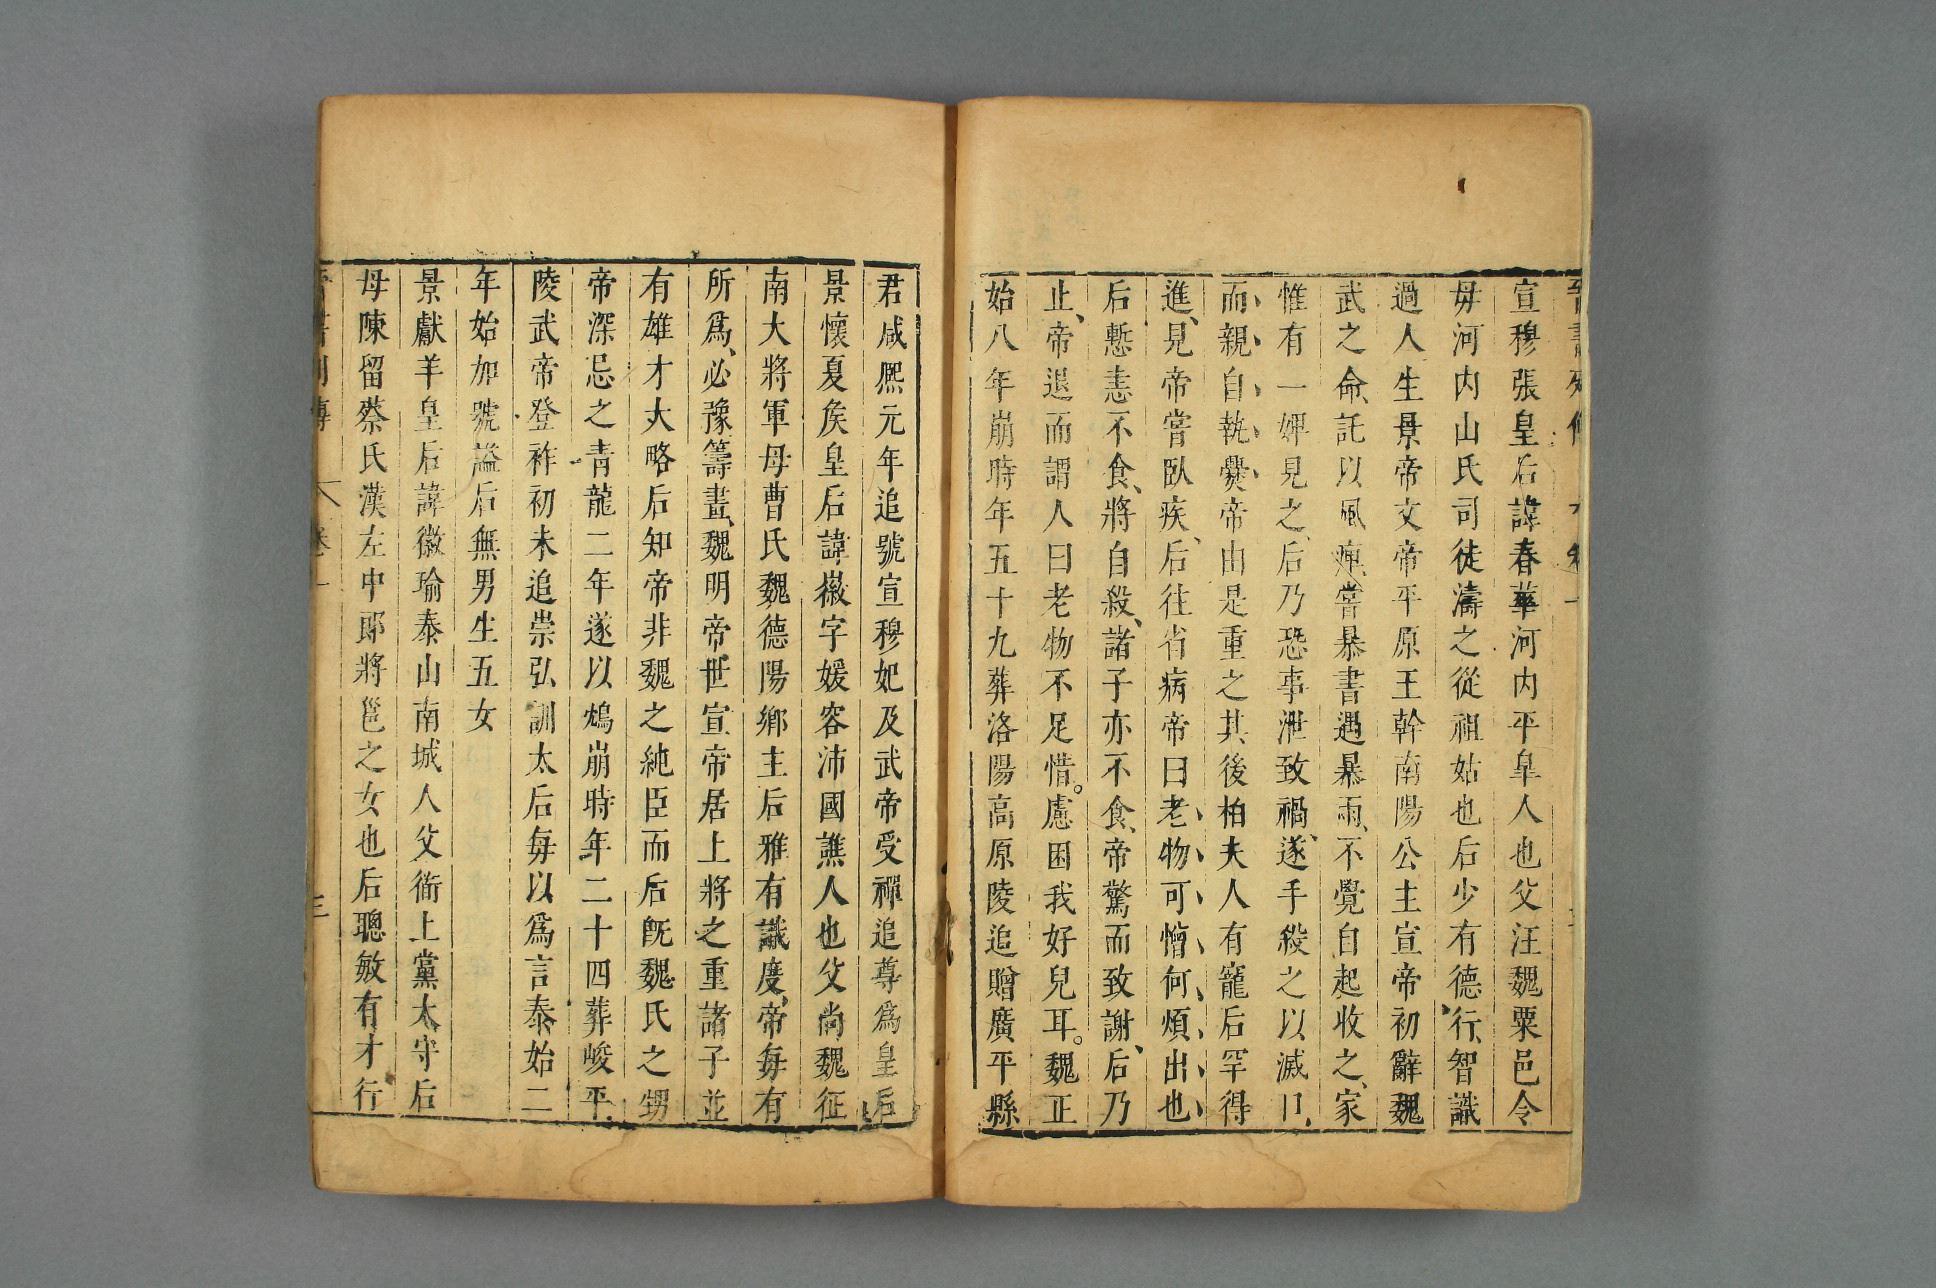 宣穆張皇后諱春華河內平臯人也父汪魏粟邑令
母河內山氏司徒濤之從祖姑也后少有德行、智識
過人生景帝文帝平原王幹南陽公主宣帝初辭魏
武之命、託以風痺、嘗暴書遇暴雨、不覺自起收之、家
惟有一婢見之、后乃恐事泄致禍、遂手殺之以滅口、
而、親、自、執、爨、帝由是重之其後柏夫人有寵后罕得
進、見帝嘗臥疾、后往省病帝曰老、物、可、憎、何、煩、出、也、
后慙恚不食、將自殺、諸子亦不食、帝驚而致謝、后乃
止、帝退而謂人曰老物不足惜。慮困我好兒耳。魏正
始八年崩時年五十九葬洛陽高原陵追贈廣平縣
君咸熙元年追號宣穆妃及武帝受禪追尊爲皇后
景懷夏矦皇后諱徽字媛容沛國譙人也父尚魏征
南大將軍母曹氏魏德陽鄉主后雅有識度、帝每有
所爲、必豫籌畫、魏明帝世宣帝居上將之重諸子並
有雄才大略后知帝非魏之純臣而后旣魏氏之甥
帝深忌之青龍二年遂以鴆崩時年二十四葬峻平
陵武帝登祚初未追崇弘訓太后每以爲言泰始二
年始加號諡后無男生五女
景獻羊皇后諱徽瑜泰山南城人父衜上黨太守后
母陳留蔡氏漢左中郎將邕之女也后聰敏有才行
晉書列傳 卷一 三